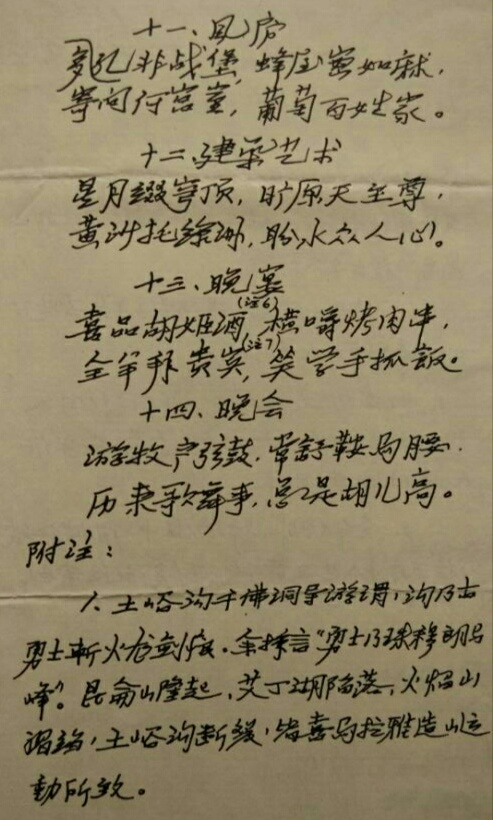 十一、风房
疑是非战堡，蜂屋密如麻，
寄问何宫室，葡萄百姓家。
十二、建筑艺术
星月缀穹顶，旷原天至尊，
黄沙托绿洲，盼水众人心。
十三、晚宴
喜品胡姬酒(注6)，横嚼烤肉串，
全羊邦贵宾(注7)，笑学手抓饭。
十四、晚会
游牧户弦鼓，常舒鞍马腰，
历来歌舞事，总是胡儿高。
附注：
1、土峪沟千佛洞导游谓，沟乃古
勇士斩火龙剑痕。余择言"勇士乃珠穆朗玛
峰"。昆仑山隆起，艾丁湖陷落，火焰山
土峪沟断缓，皆喜马拉雅造山运
动所致。